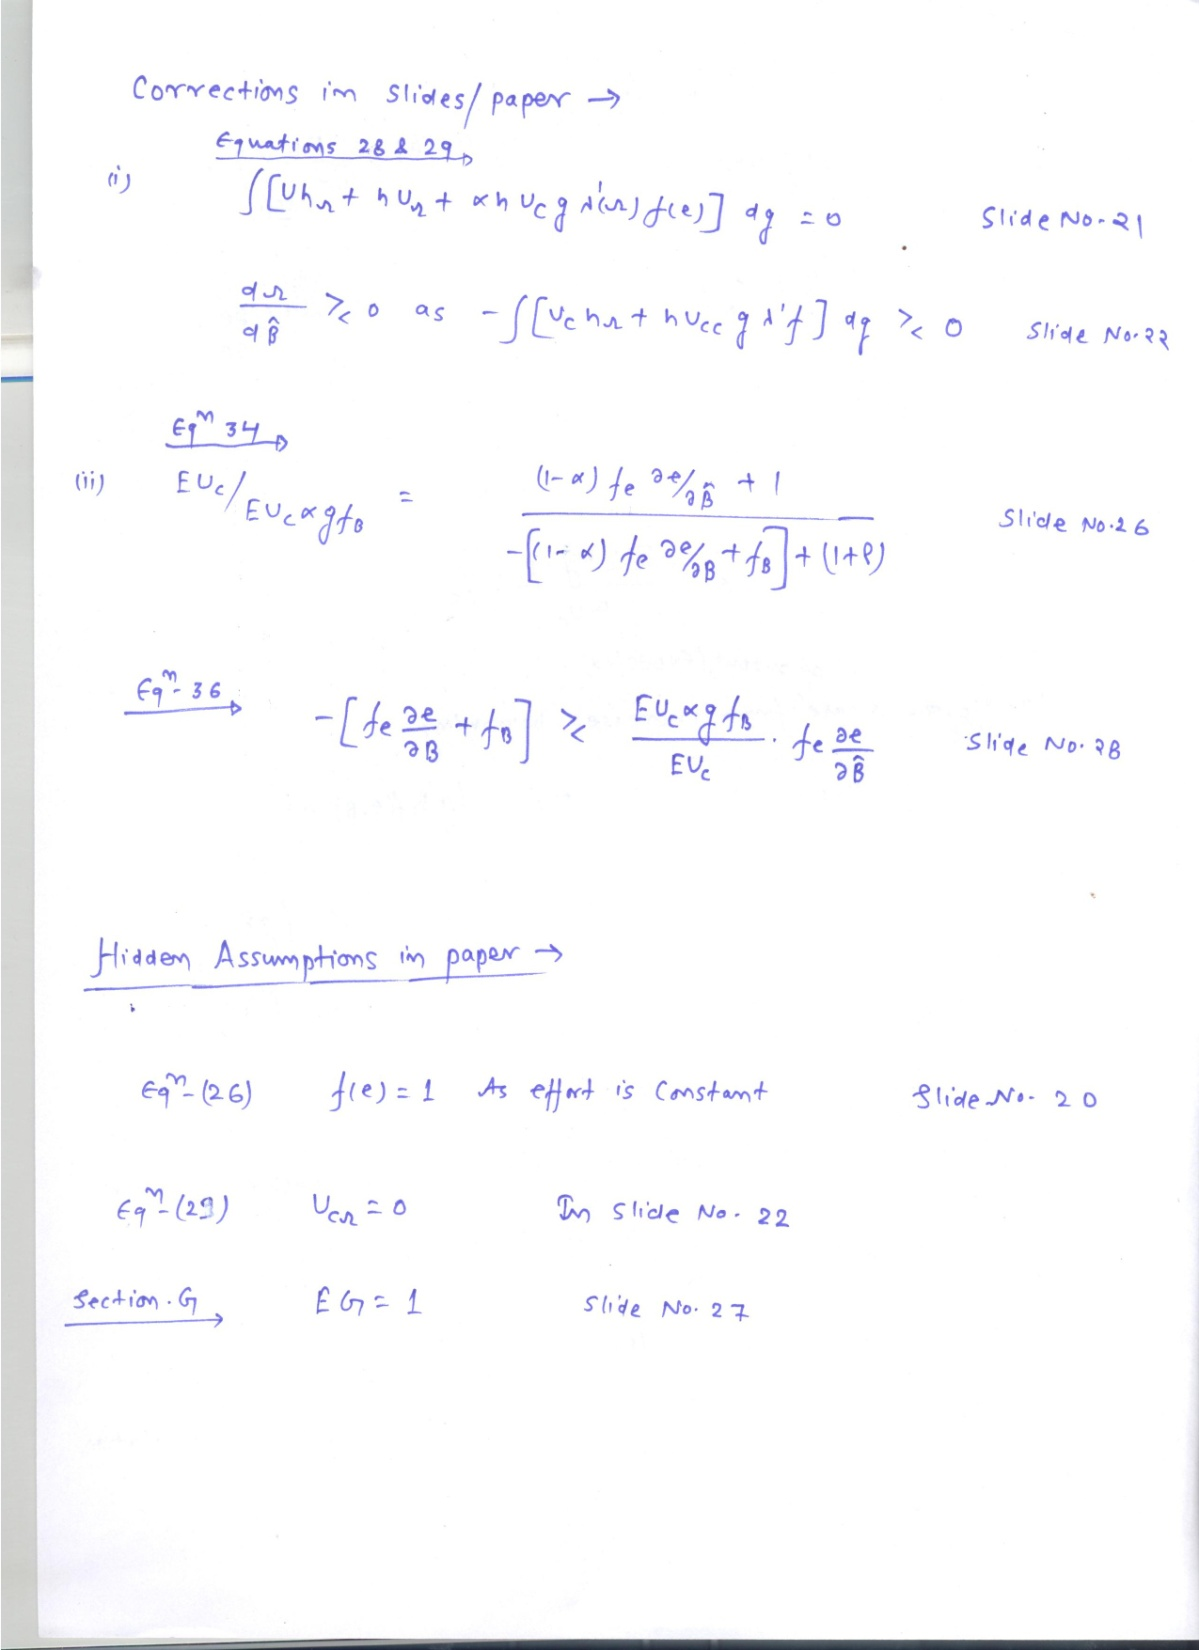 Corrections in slides/paper →
Equations 28 & 29
(i) ∫[Uh_r + hU_r + αhU_c g λ'(r) f(e)] dg = 0 Slide No-21
dr/dB̂ ≷ 0 as -∫[U_c h_r + hU_cc g λ'f] dg ≷ 0 Slide No.22
Eqⁿ 34
(ii) EU_c/EU_c αgf_B = ((1-α) f_e ∂e/∂B̂ + 1) / (-[(1-α) f_e ∂e/∂B + f_B] + (1+ρ)) Slide No.26
Eqⁿ- 36 -[f_e ∂e/∂B + f_B] ≷ EU_c αgf_B/EU_c · f_e ∂e/∂B̂ Slide No. 28
Hidden Assumptions in paper →
Eqⁿ-(26) f(e) = 1 As effort is Constant Slide No- 20
Eqⁿ-(29) U_cr = 0 In slide No- 22
Section.G EG = 1 Slide No. 27